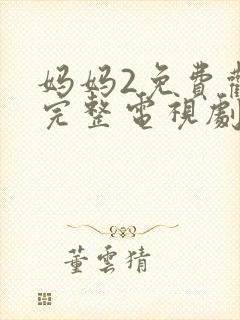 妈妈2免費
完整電視劇
董雲猜